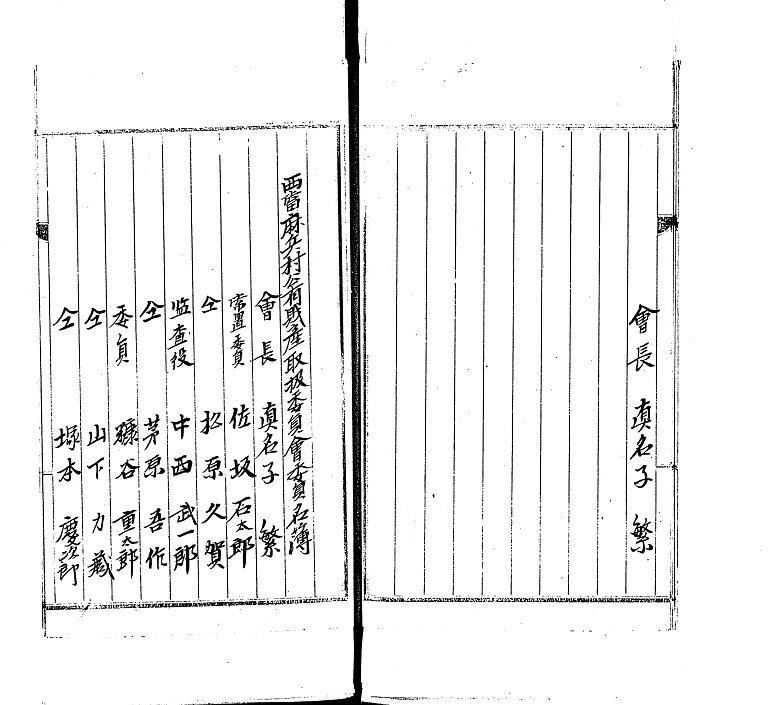 會長　眞名子　繁
西當麻兵村公有財産取扱委員會委員名簿
會長　眞名子　繁
常置委員　佐坂　石太郎
仝　松原　久賀
监查役　中西　武一郎
仝　茅原　吾作
委員　糠谷　重太郎
仝　山下　力藏
仝　塚本　慶次郎